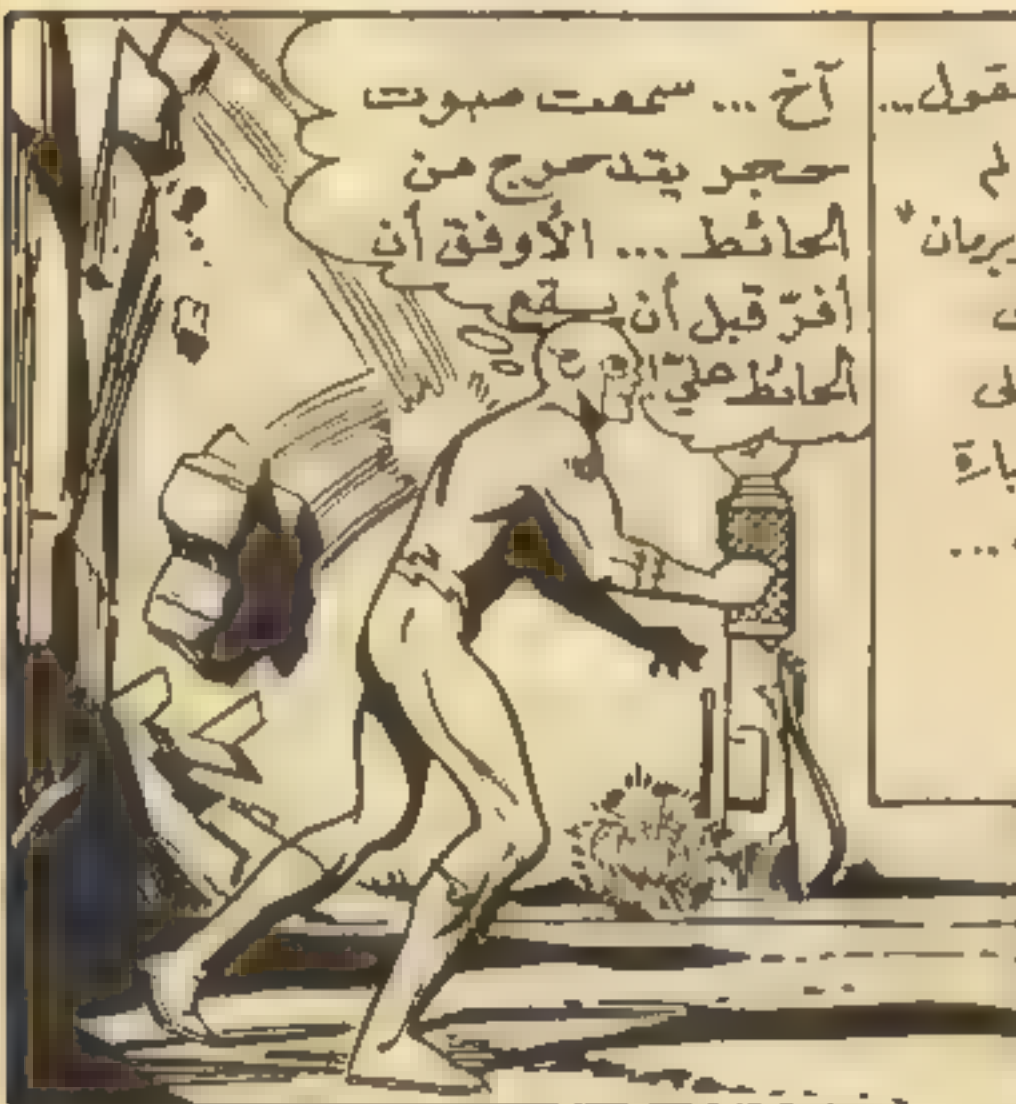 آخ ... سمعت صوت
حجر يتدحرج من
الحائط ... الأوفق أن
أفرّ قبل أن يقع
الحائط عليّ!
لم